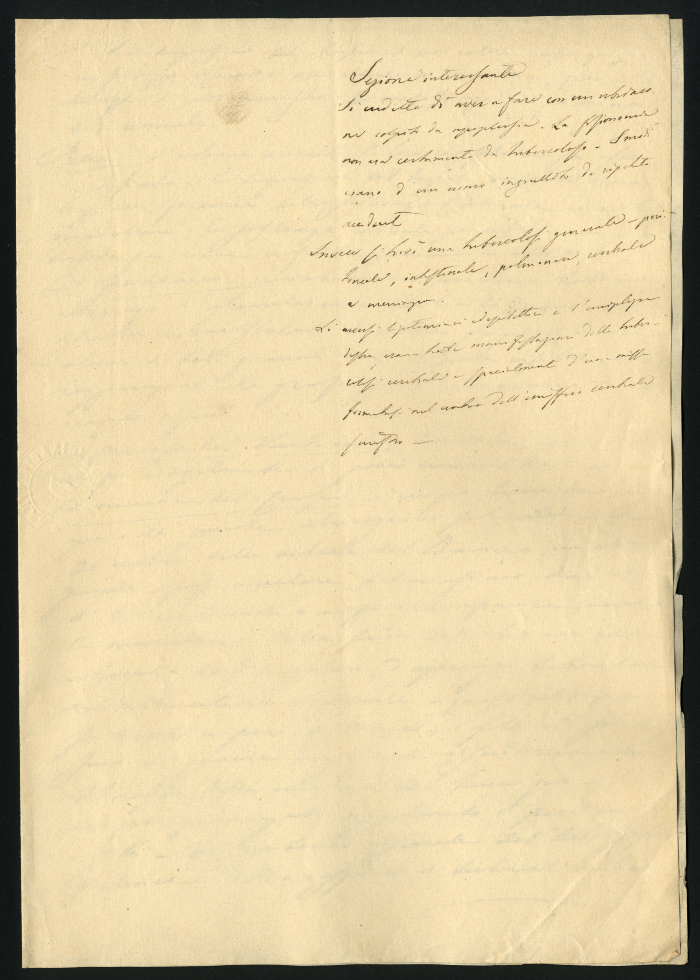 Sezione interessante
Si credette di aver a fare con un ubriaco
ne colpito da apoplessia. La fisionomia
non era certamente da tubercoloso -
d'un uomo da ripetuti
accidenti
Invece si trovò una tubercolosi generale - peri-
toneale, intestinale, polmonare, cerebrale
e meningea.
Li accessi epilettici e l'emiplegia
destra erano tutte manifestazioni della tuber-
colosi cerebrale e specialmente d'una
nel dell'emisfero cerebrale
sinistro -